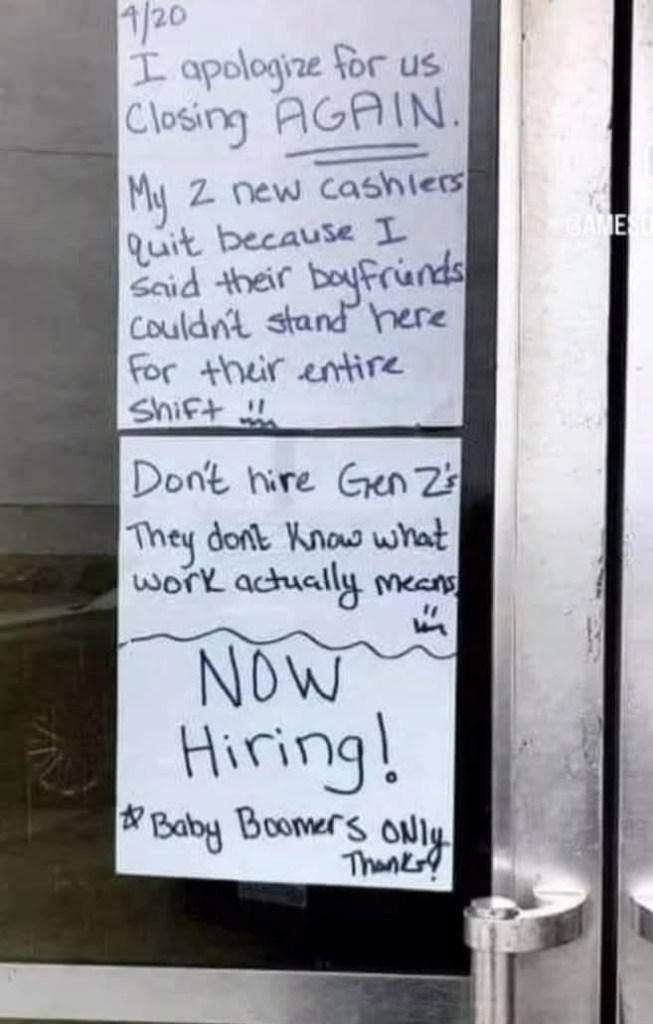 4/20
I apologize for us
Closing AGAIN.
My 2 new cashiers
quit because I
said their boyfriends
couldn't stand here
for their entire
shift
Don't hire Gen Z's
They don't know what
work actually means
NOW
Hiring!
☆ Baby Boomers only
Thanks!